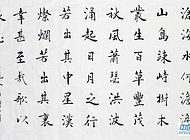 山島竦峙樹木
叢生百草豐茂
秋風蕭瑟洪波
涌起日月之行
若出其中星漢
燦爛若出其裏
幸甚至哉歌以